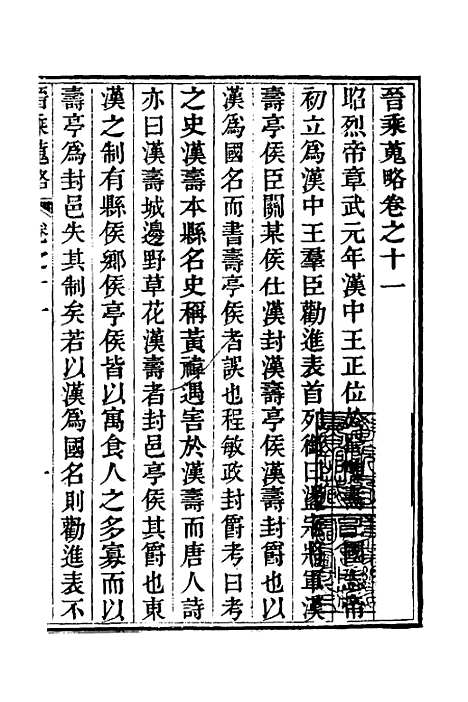 晉乘蒐略卷之十一
昭烈帝章武元年漢中王正位
帝
初立爲漢中王羣臣勸進表首列銜曰盪宼將軍漢
壽亭侯臣關某侯仕漢封漢壽亭侯漢壽封爵也以
漢爲國名而書壽亭侯者誤也程敏政封爵考曰考
之史漢壽本縣名史稱黃禕遇害於漢壽而唐人詩
亦曰漢壽城邊野草花漢壽者封邑亭侯其爵也東
漢之制有縣侯鄉侯亭侯皆以寓食人之多寡而以
壽亭爲封邑失其制矣若以漢爲國名則勸進表不
晉乘蒐略
卷之十一
一